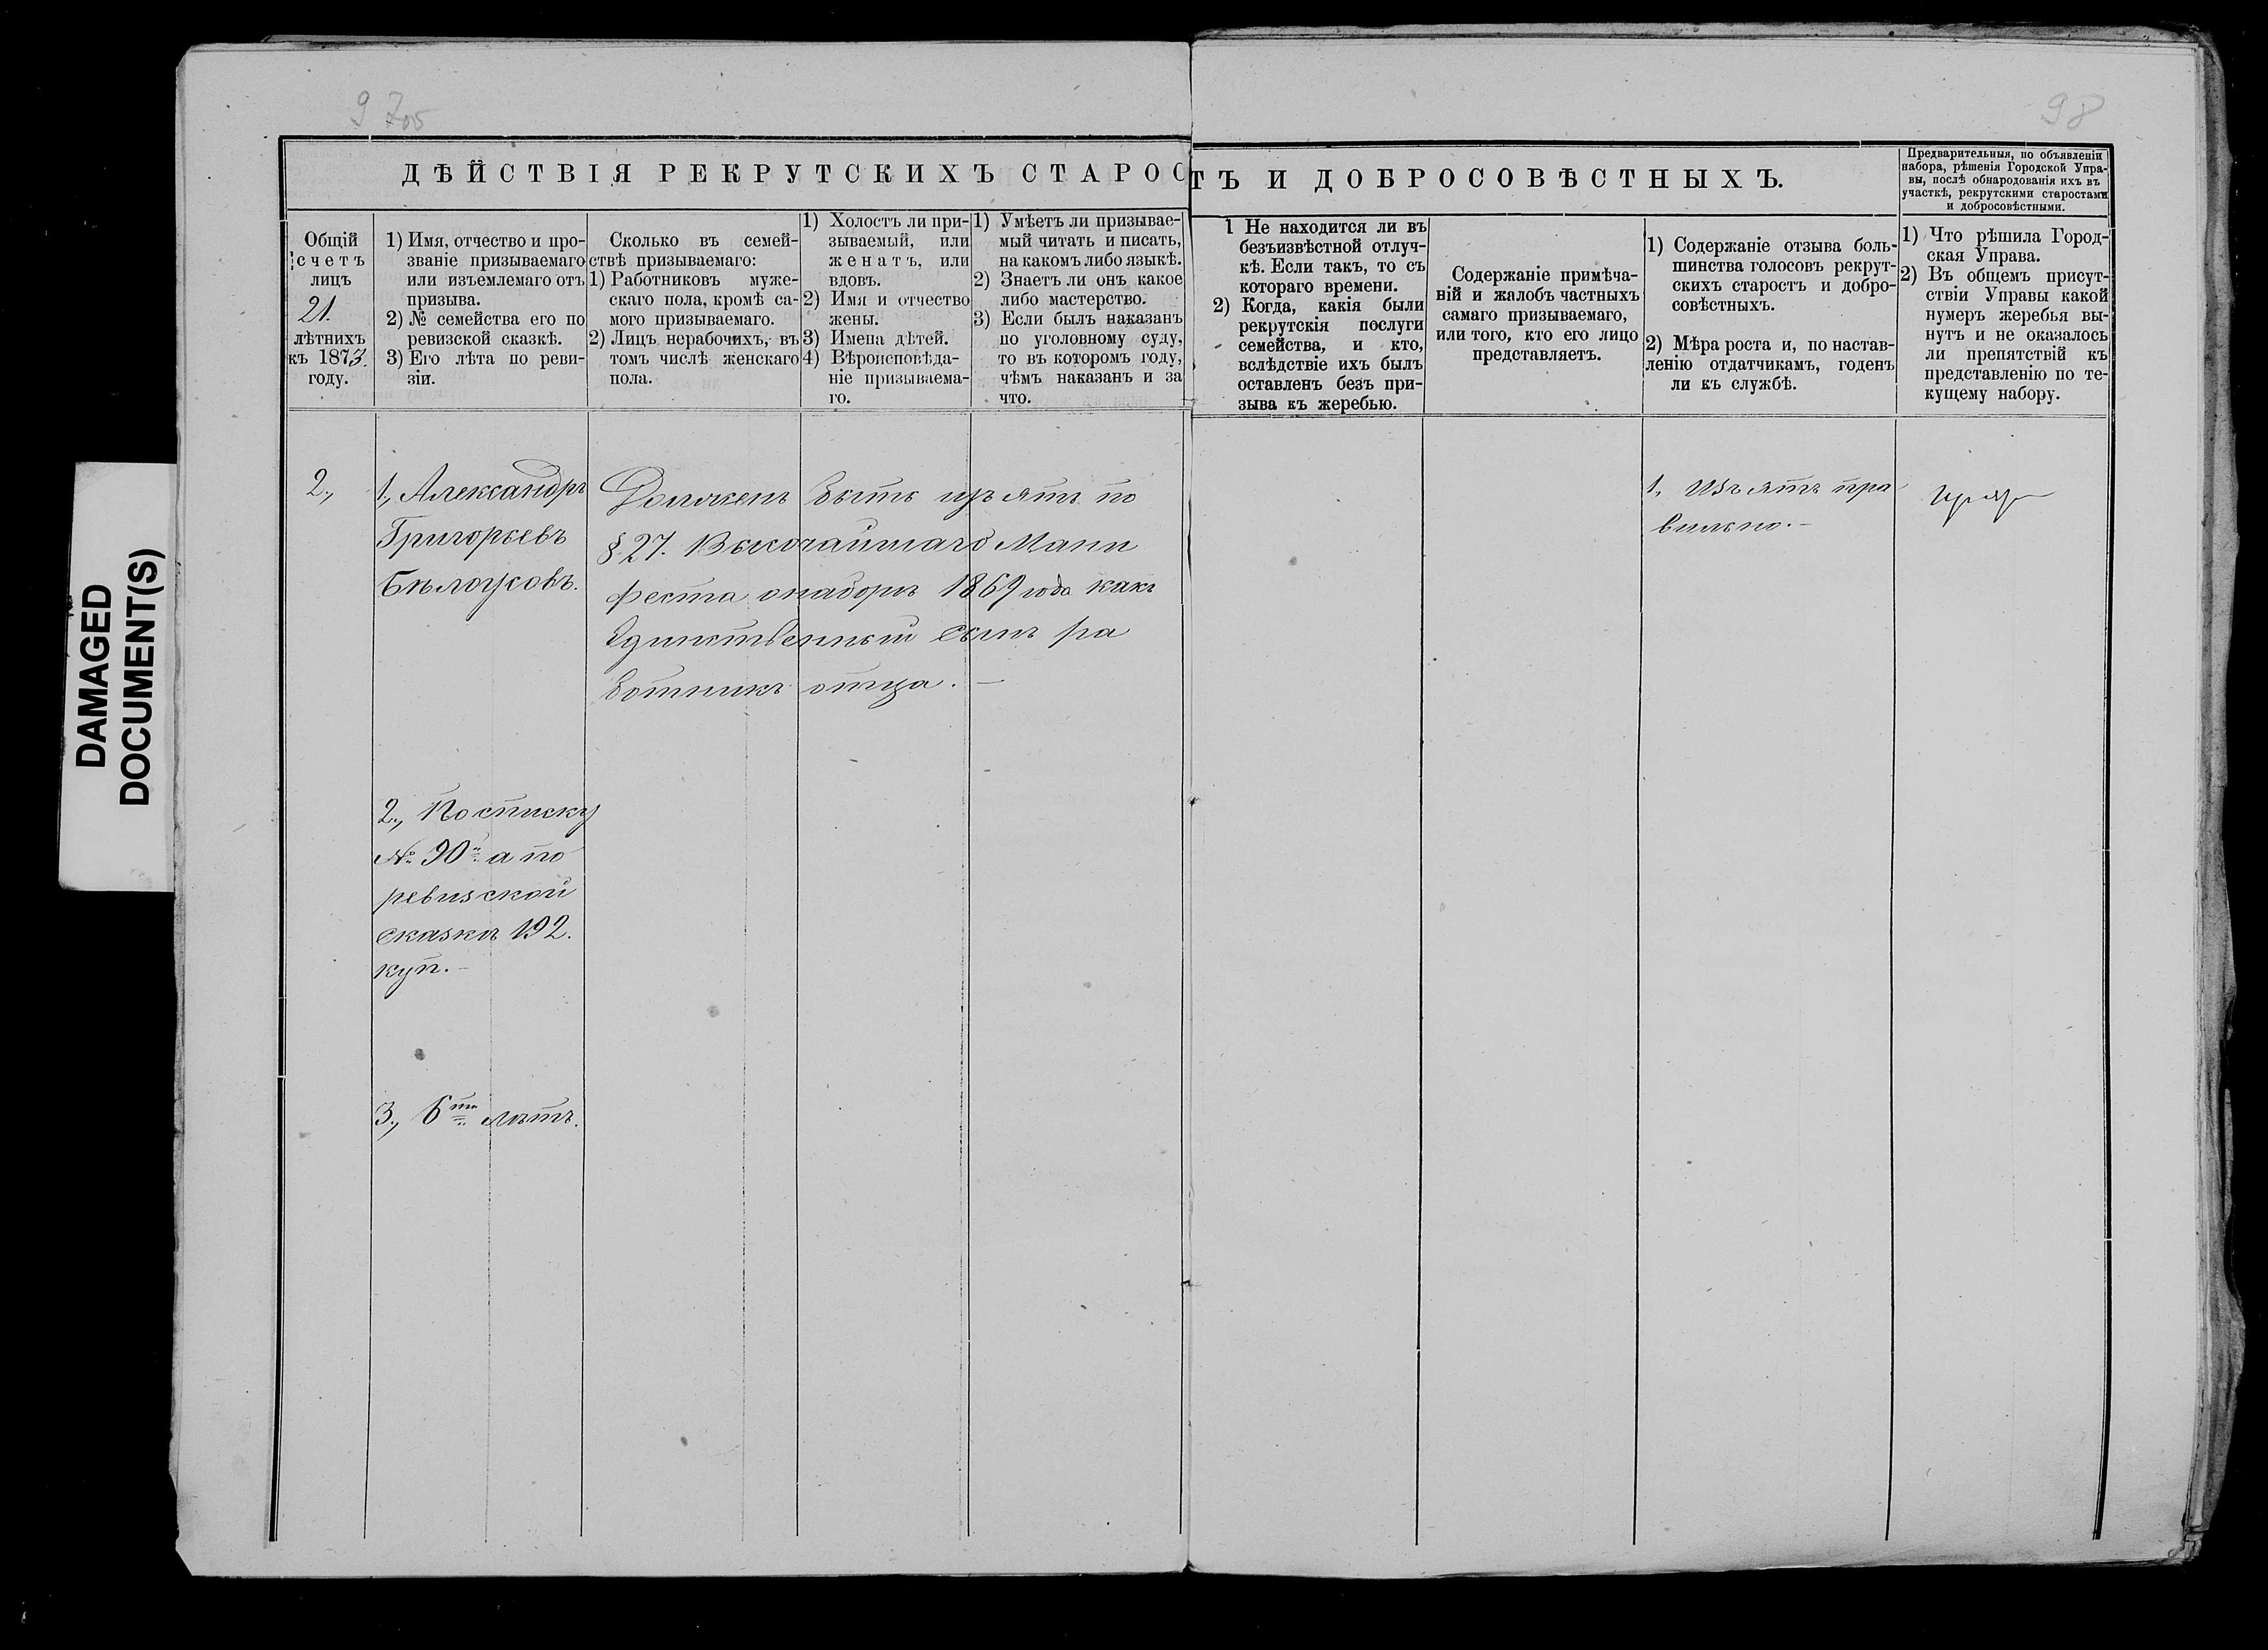 97об
98
ДѢЙСТВІЯ РЕКРУТСКИХЪ СТАРОСТЪ И ДОБРОСОВѢСТНЫХЪ.
Предварительныя, по объявленіи
набора, рѣшенія Городской Упра-
вы, послѣ обнародованія ихъ въ
участкѣ, рекрутскими старостами
и добросовѣстными.
Общій
счетъ
лицъ
21.
лѣтнихъ
къ 1873.
году.
1) Имя, отчество и про-
званіе призываемаго
или изъемлемаго отъ
призыва.
2) № семейства его по
ревизской сказкѣ.
3) Его лѣта по реви-
зіи.
Сколько въ семей-
ствѣ призываемаго:
1) Работниковъ муже-
скаго пола, кромѣ са-
мого призываемаго.
2) Лицъ нерабочихъ, въ
томъ числѣ женскаго
пола.
1) Холостъ ли при-
зываемый, или
женатъ, или
вдовъ.
2) Имя и отчество
жены.
3) Имена дѣтей.
4) Вѣроисповѣда-
ніе призываема-
го.
1) Умѣетъ ли призывае-
мый читать и писать,
на какомъ либо языкѣ.
2) Знаетъ ли онъ какое
либо мастерство.
3) Если былъ наказанъ
по уголовному суду,
то въ которомъ году,
чѣмъ наказанъ и за
что.
1 Не находится ли въ
безъизвѣстной отлуч-
кѣ. Если такъ, то съ
котораго времени.
2) Когда, какія были
рекрутскія послуги
семейства, и кто,
вслѣдствіе ихъ былъ
оставленъ безъ при-
зыва къ жеребью.
Содержаніе примѣча-
ній и жалобъ частныхъ
самаго призываемаго,
или того, кто его лицо
представляетъ.
1) Содержаніе отзыва боль-
шинства голосовъ рекрут-
скихъ старостъ и добро-
совѣстныхъ.
2) Мѣра роста и, по настав-
ленію отдатчикамъ, годенъ
ли къ службѣ.
1) Что рѣшила Город-
ская Управа.
2) Въ общемъ присут-
ствіи Управы какой
нумеръ жеребья вы-
нутъ и не оказалось
ли препятствій къ
представленію по те-
кущему набору.
2.,
1., Александръ
Григорьевъ
Бѣлоусовъ.
2., По списку
№ 90й а по
ревизской
сказкѣ 192.
куп.-
3., 6ти лѣтъ.
Долженъ быть изъятъ по
§ 27. Высочайшаго Мани
феста о наборѣ 1869 года какъ
Единственный сынъ ра
ботникъ отца. —
1, Изъятъ пра
вильно.-